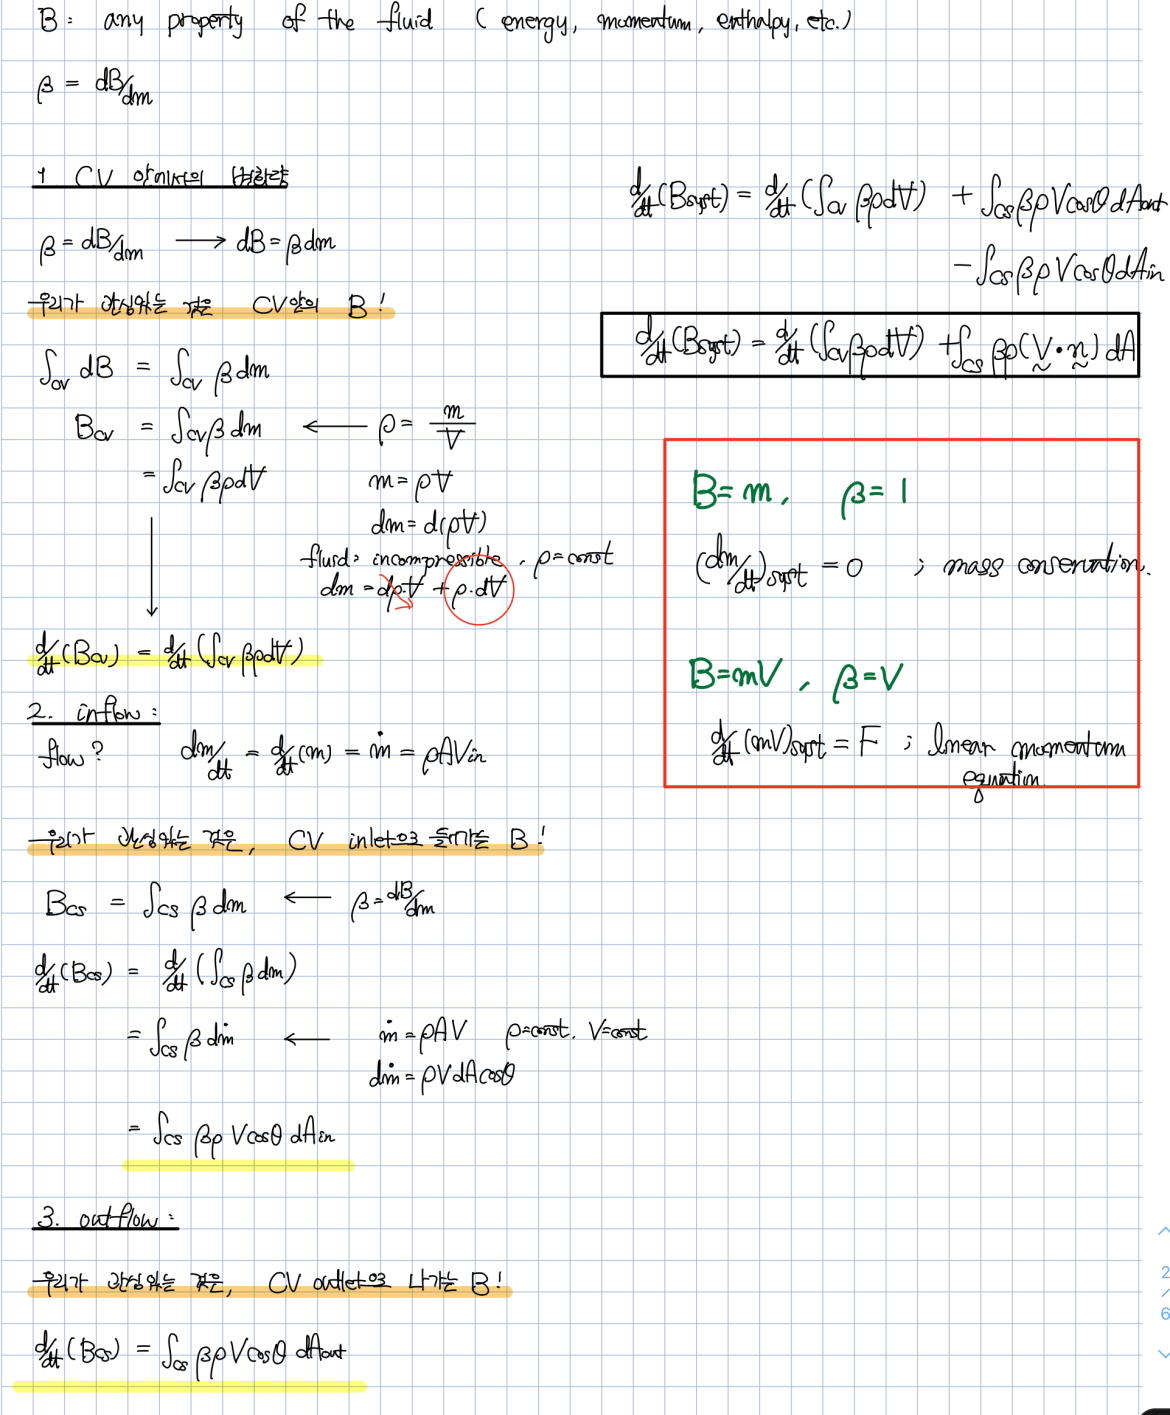 B: any property of the fluid (energy, momentum, enthalpy, etc.)
β = dB/dm
1 CV 안에서의 변화량
β = dB/dm ⟶ dB = β dm
우리가 관심있는 것은 CV안의 B!
∫cv dB = ∫cv β dm
Bcv = ∫cv β dm ⟵ ρ = m/V
= ∫cv βρdV
m = ρV
dm = d(ρV)
fluid: incompressible, ρ=const
dm = dρ·V + ρ·dV
d/dt(Bcv) = d/dt(∫cv βρdV)
2. inflow:
flow? dm/dt = d/dt(m) = ṁ = ρAVin
우리가 관심있는 것은, CV inlet으로 들어가는 B!
Bcs = ∫cs β dm ⟵ β = dB/dm
d/dt(Bcs) = d/dt(∫cs β dm)
= ∫cs β dṁ ⟵ ṁ = ρAV ρ=const. V=const
dṁ = ρVdAcosθ
= ∫cs βρ Vcosθ dAin
3. outflow:
우리가 관심있는 것은, CV outlet으로 나가는 B!
d/dt(Bcs) = ∫cs βρVcosθ dAout
d/dt(Bsyst) = d/dt(∫cv βρdV) + ∫cs βρVcosθdAout
- ∫cs βρVcosθdAin
d/dt(Bsyst) = d/dt(∫cv βρdV) + ∫cs βρ(V·n)dA
B=m, β=1
(dm/dt)syst = 0 ; mass conservation.
B=mV, β=V
d/dt(mV)syst = F ; linear momentum
equation
2
/
6